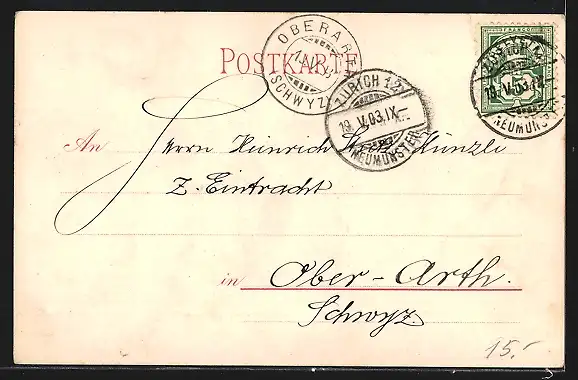 POSTKARTE
OBERARTH
(SCHWYZ)
ZÜRICH 12
19.V.03.IX
NEUMÜNSTER
FRANCO
19.V.03.IX
NEUMÜNSTER
An Herrn Heinrich Künzli
Z. Eintracht
in Ober-Arth.
Schwyz.
15.-